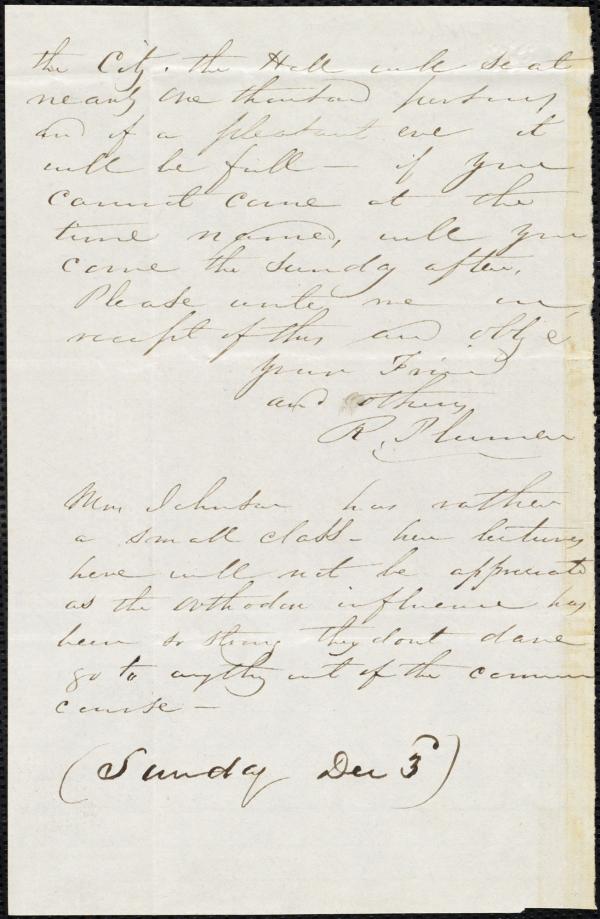 the City. the Hall will seat
nearly one thousand persons,
and if a pleasant eve it
will be full – if you
cannot come at the
time named, will you
come the Sunday after.
Please write me on
receipt of this and oblige
your Friend
and others
R. Plumer
Mrs Johnson has rather
a small class – her lectures
here will not be appreciated
as the orthodox influence has
been so strong they dont dare
go to anything out of the common
course –
(Sunday Dec 3)